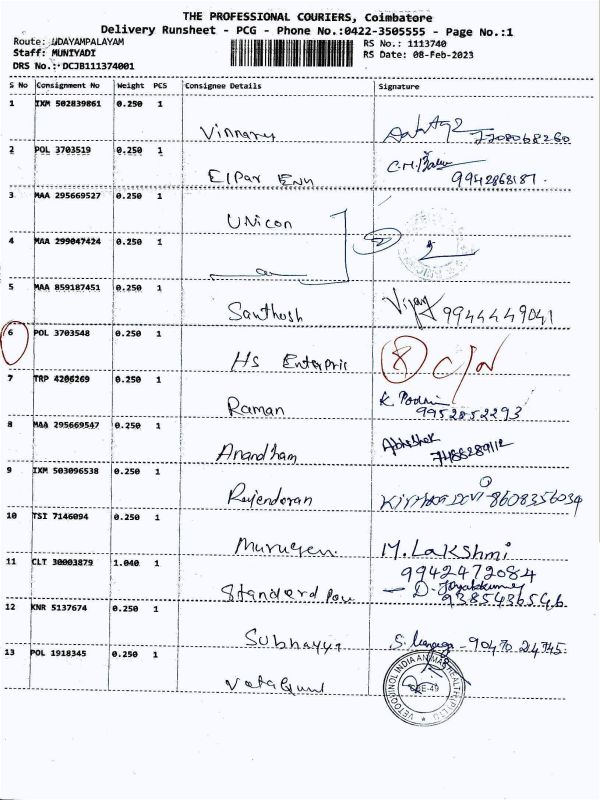 THE PROFESSIONAL COURIERS, Coimbatore
Delivery Runsheet - PCG - Phone No.:0422-3505555 - Page No.:1
Route: UDAYAMPALAYAM
RS No.: 1113740
Staff: MUNIYADI
RS Date: 08-Feb-2023
DRS No.: DCJB111374001
S No Consignment No Weight PCS Consignee Details Signature
1 IXM 502839861 0.250 1
Vinnary
2 POL 3703519 0.250 1
Elpar Enn
9942868187.
3 MAA 295669527 0.250 1
Unicon
4 MAA 299047424 0.250 1
2
5 MAA 859187451 0.250 1
Santhosh Vijay 9944449041
6 POL 3703548 0.250 1
Hs Enterpris 8 C/N
7 TRP 4206269 0.250 1
Raman 9952852293
8 MAA 295669547 0.250 1
Anandham Abhishek
9 IXM 503096538 0.250 1
Rajendran 8608356034
10 TSI 7146094 0.250 1
Murugen M. LAKSHMI
9942472084
11 CLT 30003879 1.040 1
Standerd Pow D. Jayakkumar
9385436546
12 KNR 5137674 0.250 1
Subhayya
13 POL 1918345 0.250 1
VETOQUINOL INDIA ANIMAL HEALTH (P) LTD